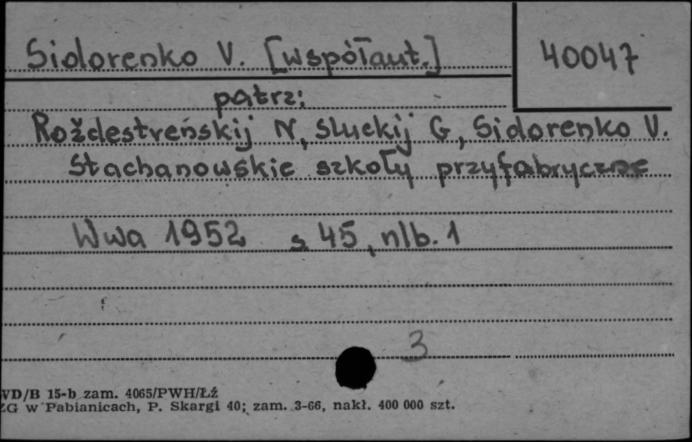 Sidorenko V. [współaut.] 40047
patrz:
Roždestvenskij N, Sluckij G, Sidorenko V.
Stachanowskie szkoły przyfabryczne
Wwa 1952 s 45, nlb. 1
3
VD/B 15-b zam. 4065/PWH/Łź
ZG w Pabianicach, P. Skargi 40; zam. 3-66, nakł. 400 000 szt.